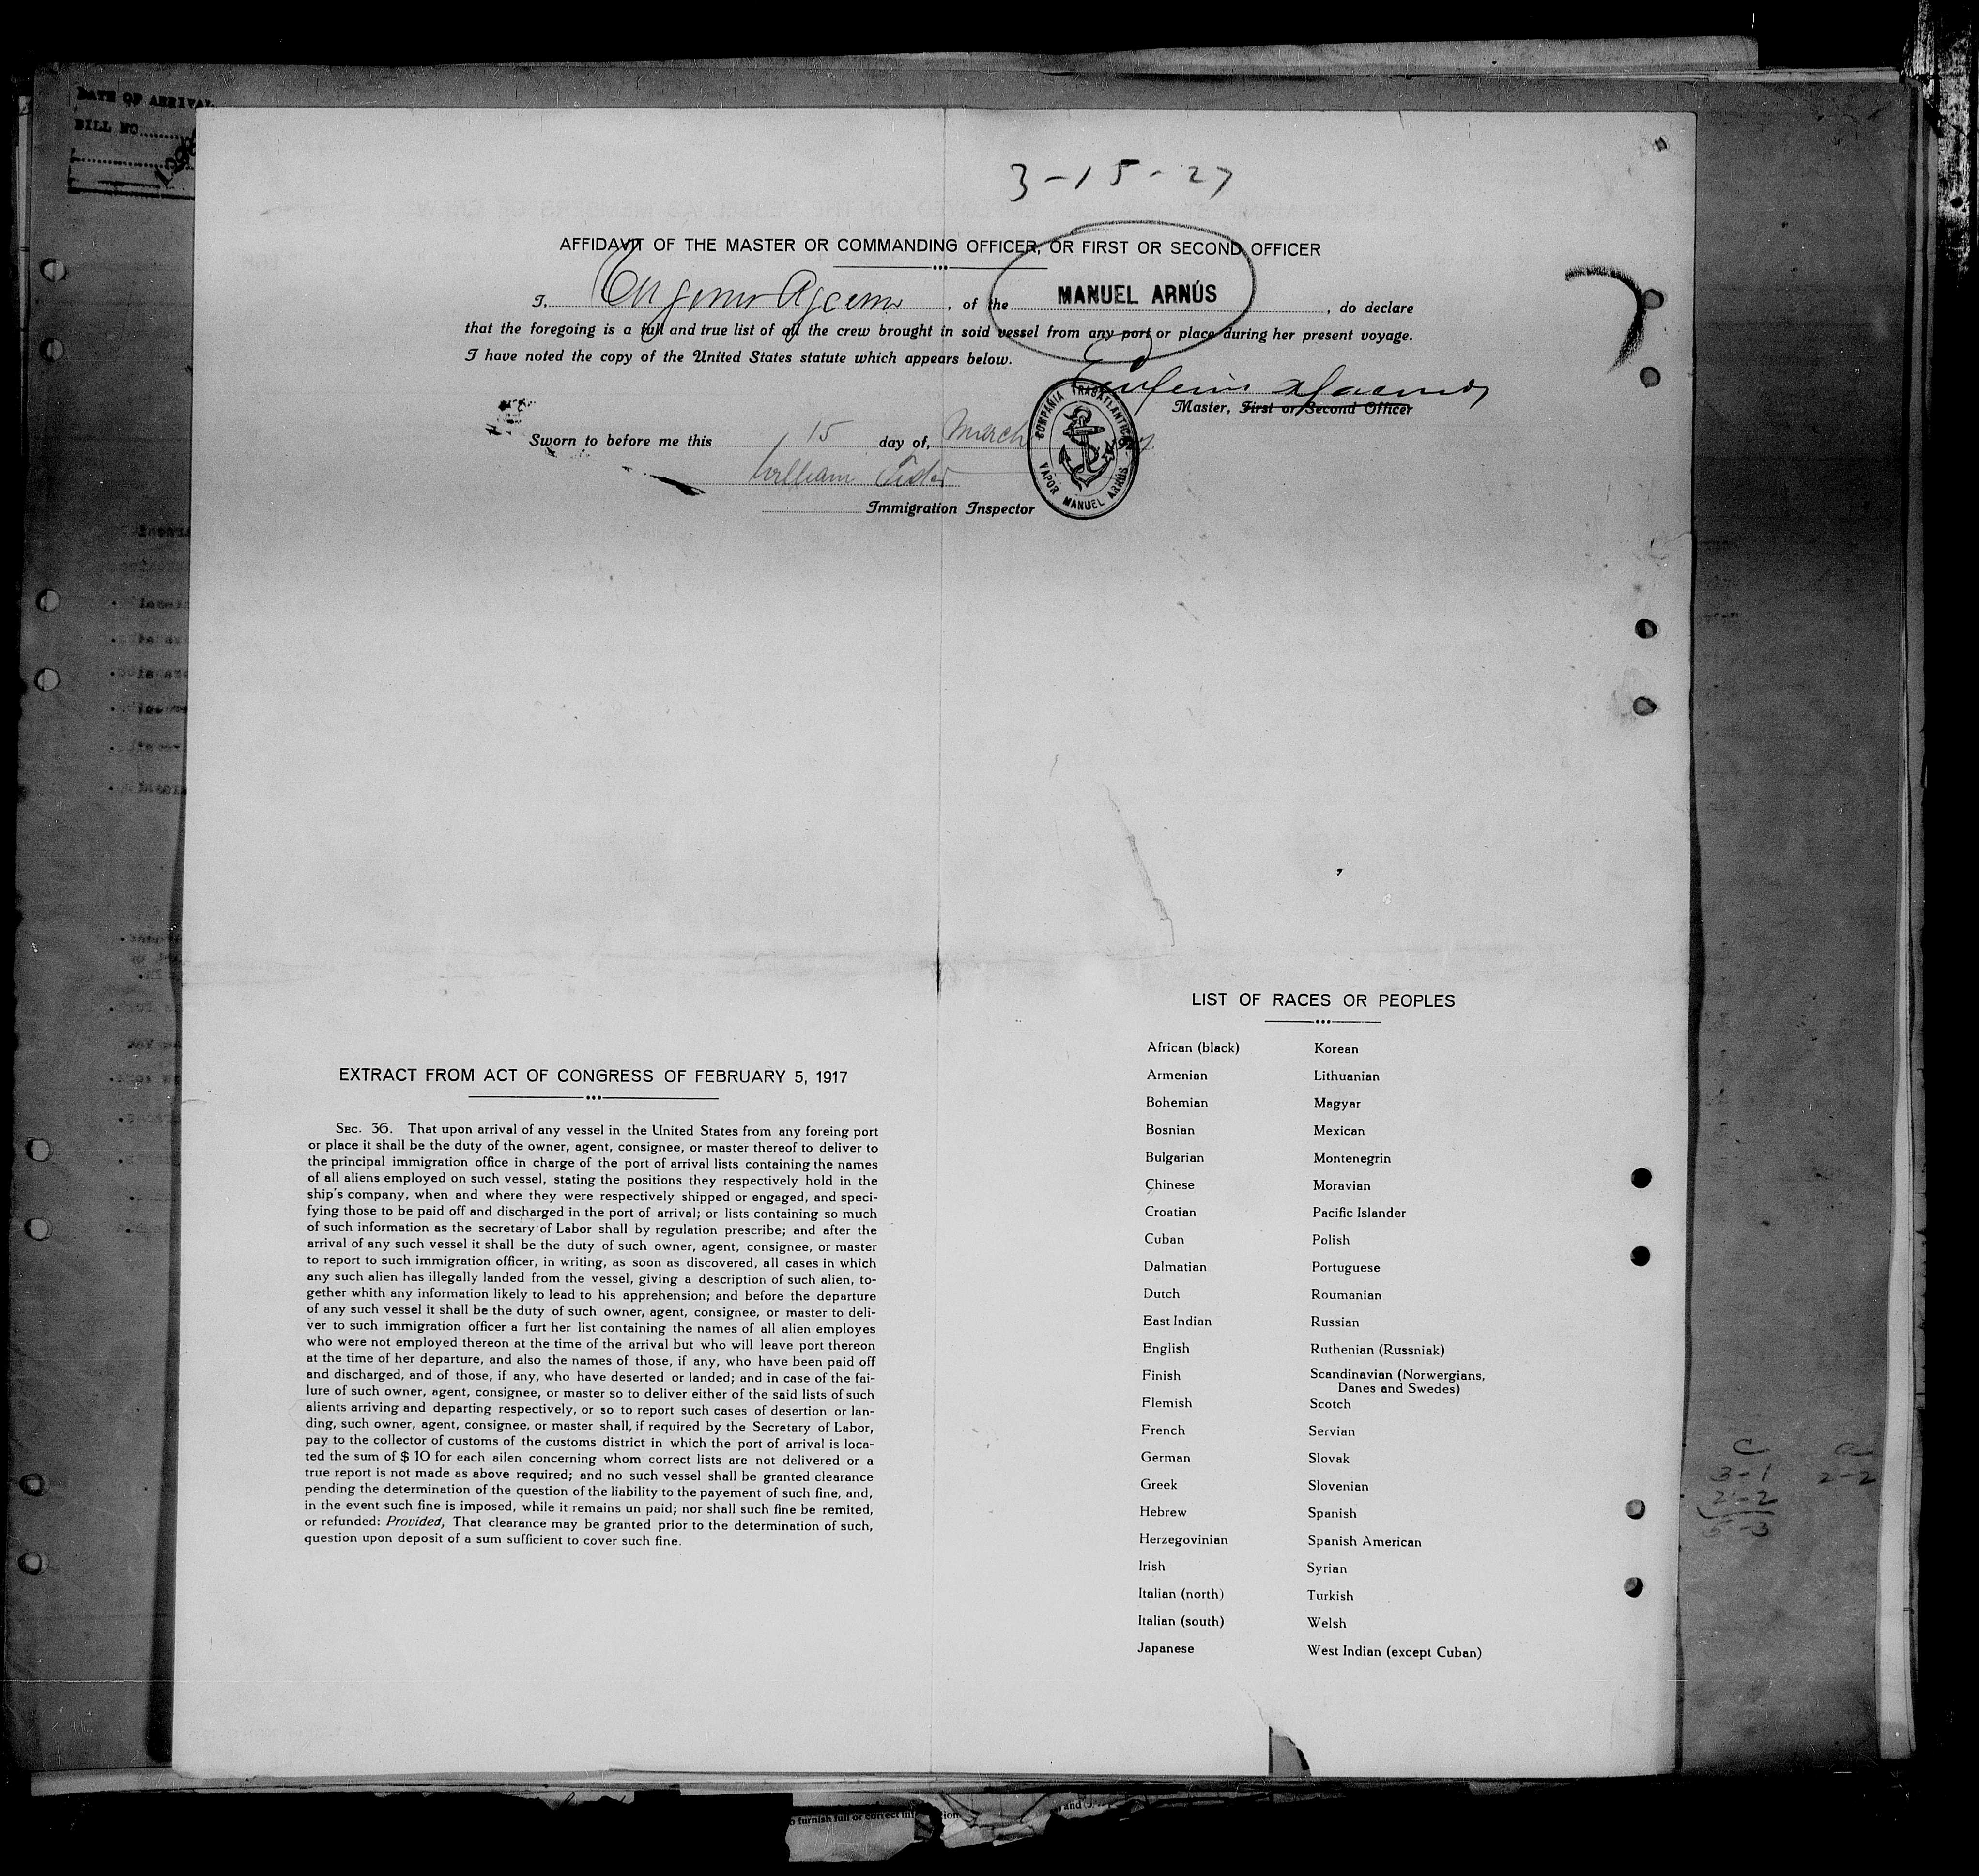 DATE OF ARRIVAL
BILL NO
3-15-27
AFFIDAVIT OF THE MASTER OR COMMANDING OFFICER, OR FIRST OR SECOND OFFICER
I, Eugenio , of the MANUEL ARNÚS , do declare
that the foregoing is a full and true list of all the crew brought in soid vessel from any port or place during her present voyage.
I have noted the copy of the United States statute which appears below.
Eugenio
Master, First or Second Officer
COMPAÑIA TRASATLANTICA
VAPOR MANUEL ARNÚS
Sworn to before me this 15 day of, March
William
Immigration Inspector
EXTRACT FROM ACT OF CONGRESS OF FEBRUARY 5, 1917
SEC. 36. That upon arrival of any vessel in the United States from any foreing port
or place it shall be the duty of the owner, agent, consignee, or master thereof to deliver to
the principal immigration office in charge of the port of arrival lists containing the names
of all aliens employed on such vessel, stating the positions they respectively hold in the
ship's company, when and where they were respectively shipped or engaged, and speci-
fying those to be paid off and discharged in the port of arrival; or lists containing so much
of such information as the secretary of Labor shall by regulation prescribe; and after the
arrival of any such vessel it shall be the duty of such owner, agent, consignee, or master
to report to such immigration officer, in writing, as soon as discovered, all cases in which
any such alien has illegally landed from the vessel, giving a description of such alien, to-
gether whith any information likely to lead to his apprehension; and before the departure
of any such vessel it shall be the duty of such owner, agent, consignee, or master to deli-
ver to such immigration officer a furt her list containing the names of all alien employes
who were not employed thereon at the time of the arrival but who will leave port thereon
at the time of her departure, and also the names of those, if any, who have been paid off
and discharged, and of those, if any, who have deserted or landed; and in case of the fai-
lure of such owner, agent, consignee, or master so to deliver either of the said lists of such
alients arriving and departing respectively, or so to report such cases of desertion or lan-
ding, such owner, agent, consignee, or master shall, if required by the Secretary of Labor,
pay to the collector of customs of the customs district in which the port of arrival is loca-
ted the sum of $ 10 for each ailen concerning whom correct lists are not delivered or a
true report is not made as above required; and no such vessel shall be granted clearance
pending the determination of the question of the liability to the payement of such fine, and,
in the event such fine is imposed, while it remains un paid; nor shall such fine be remited,
or refunded: Provided, That clearance may be granted prior to the determination of such,
question upon deposit of a sum sufficient to cover such fine.
LIST OF RACES OR PEOPLES
African (black) Korean
Armenian Lithuanian
Bohemian Magyar
Bosnian Mexican
Bulgarian Montenegrin
Chinese Moravian
Croatian Pacific Islander
Cuban Polish
Dalmatian Portuguese
Dutch Roumanian
East Indian Russian
English Ruthenian (Russniak)
Finish Scandinavian (Norwergians,
Danes and Swedes)
Flemish Scotch
French Servian
German Slovak
Greek Slovenian
Hebrew Spanish
Herzegovinian Spanish American
Irish Syrian
Italian (north) Turkish
Italian (south) Welsh
Japanese West Indian (except Cuban)
C
3-1 2-2
2-2
5-3
o furnish full or correct
and